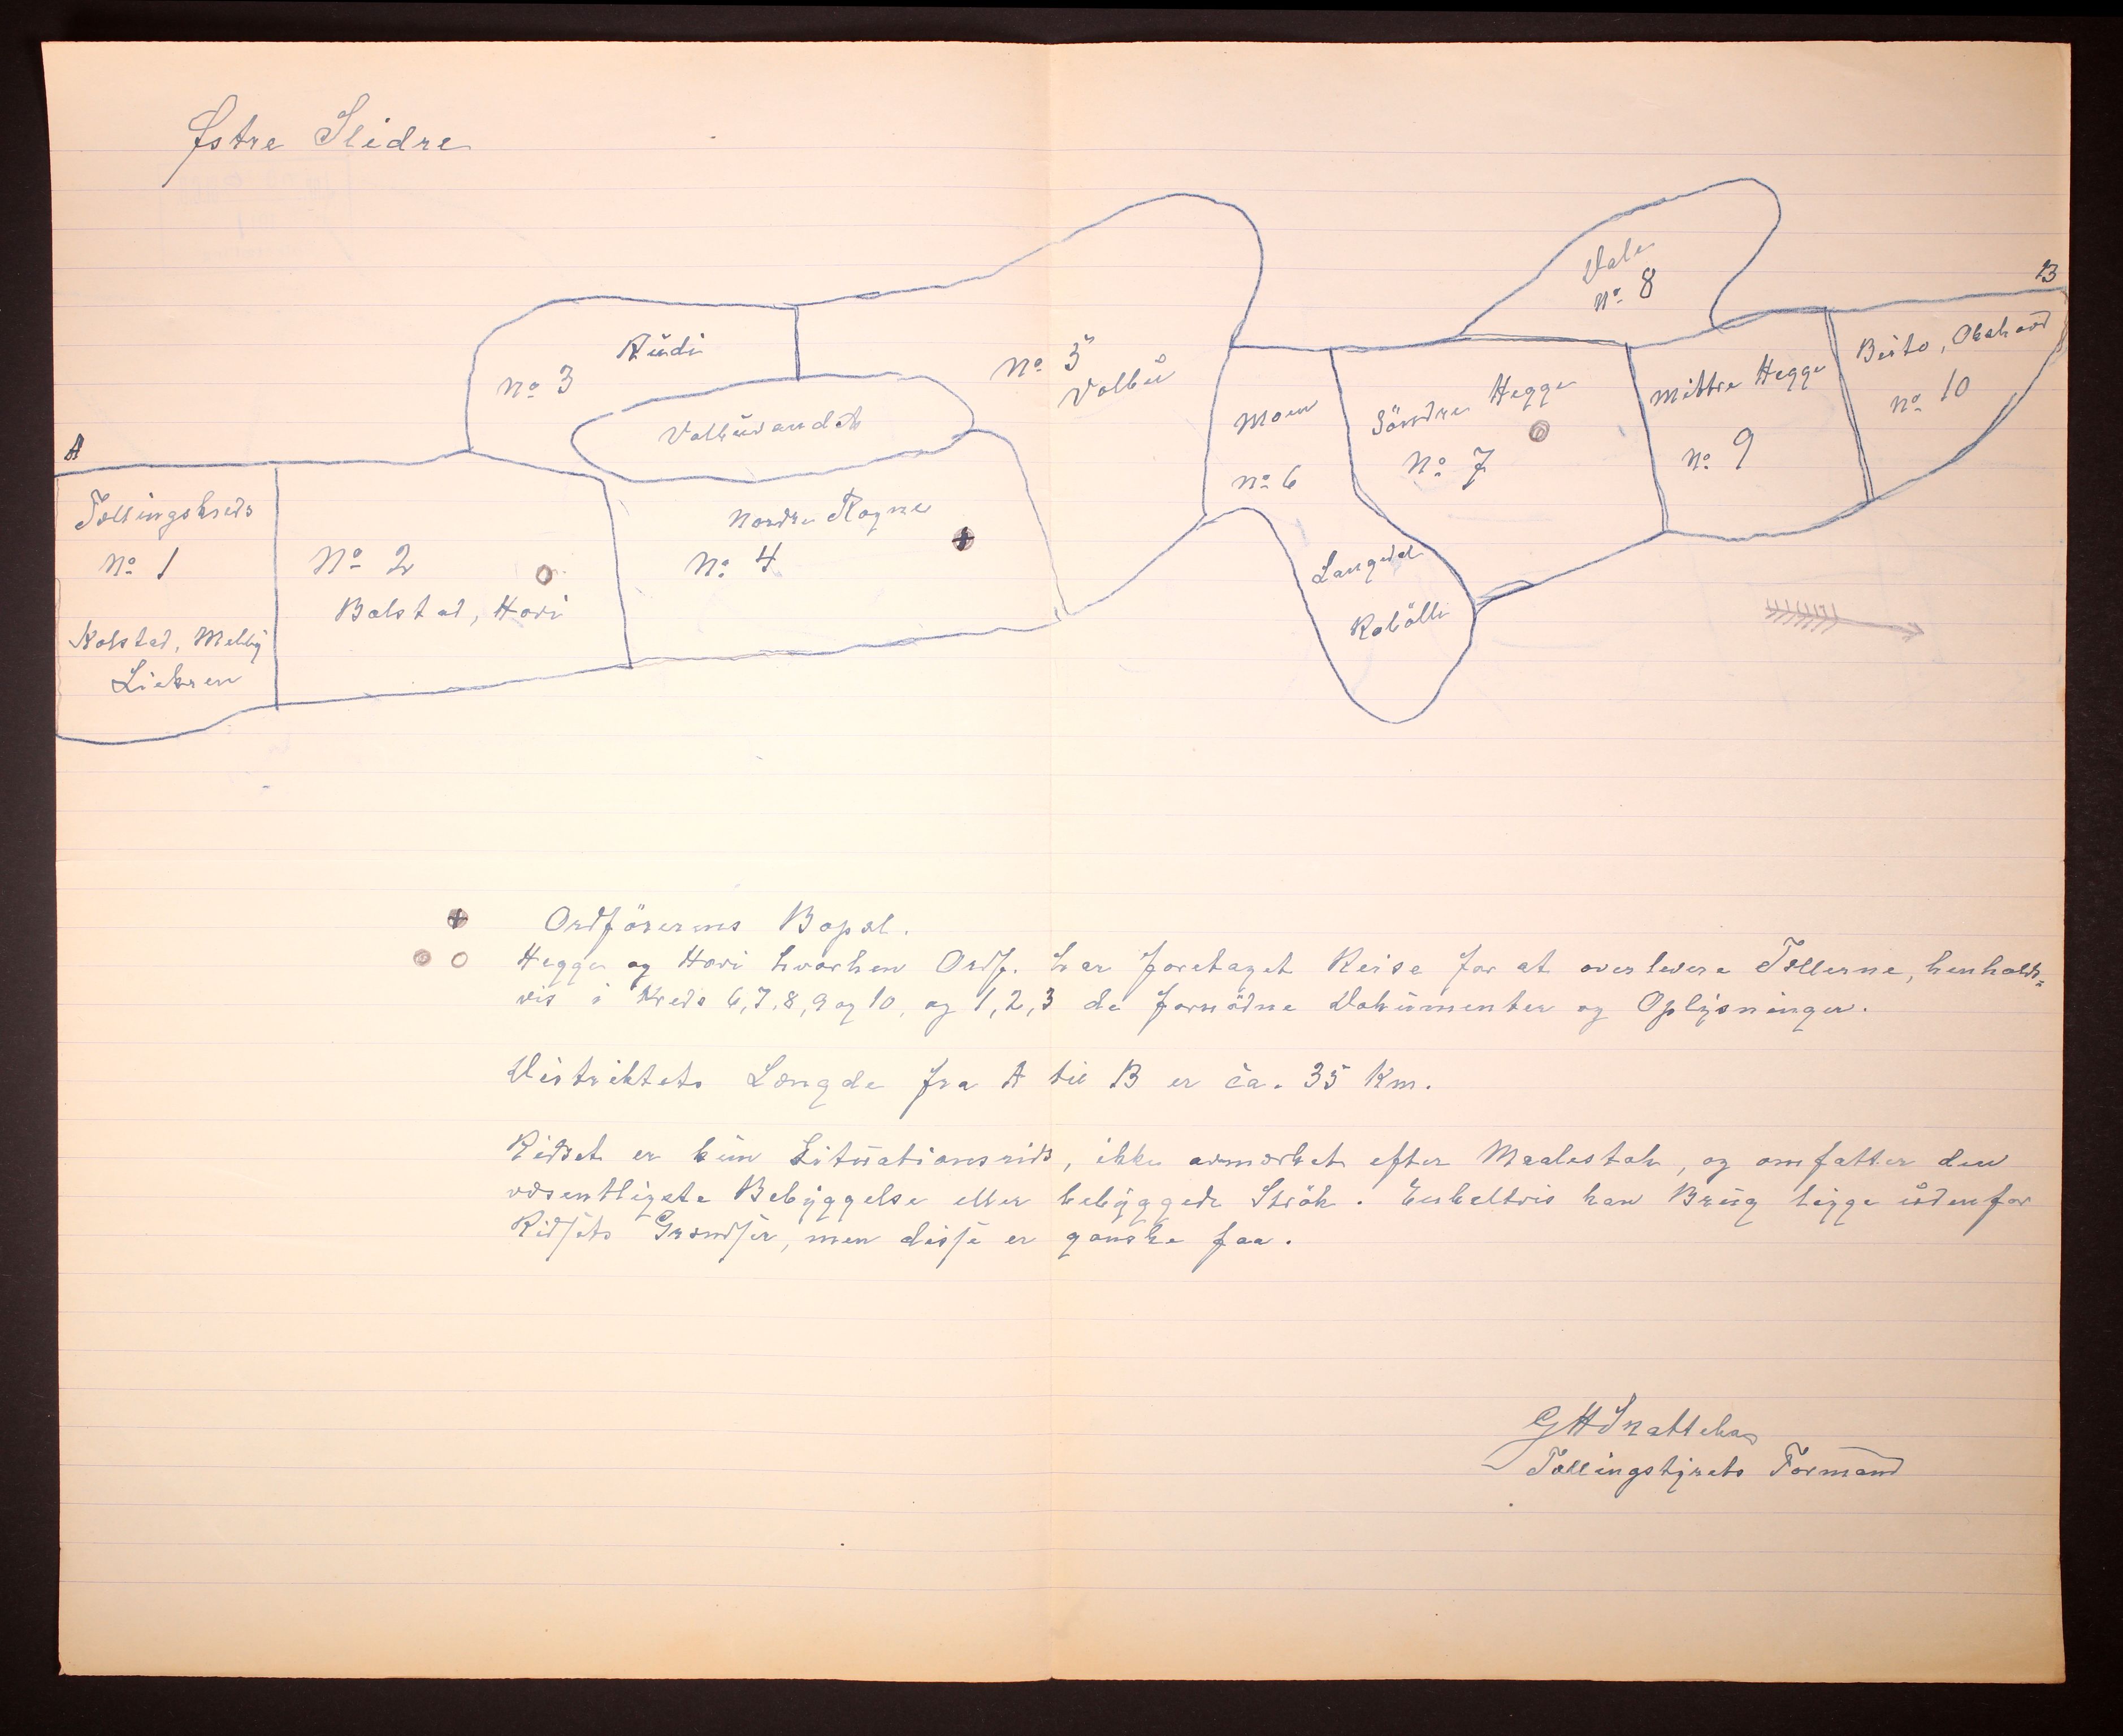 Østre Slidre
B
Dale
No. 8
Rudi
No. 3
No. 5
Volbu
Volbuvandet
Beito, Okshovd
No. 10
Mittre Hegge
No. 9
Söndre Hegge
No. 7
Moen
No. 6
A
Tællingskreds
No. 1
Kolstad, Melby
Liekren
No. 2
Bolstad, Hovi
Nordre Rogne
No. 4
Langedal
Robölle
Ordförerens Bopæl.
Hegge og Hovi hvorhen Ordf. har foretaget Reise for at overlevere Tællerne, henholds-
vis i Kreds 6, 7, 8, 9 og 10, og 1, 2, 3 de fornödne Dokumenter og Oplysninger.
Distriktets Længde fra A til B er ca. 35 Km.
Ridset er kun Situationsrids, ikke avmærket efter Maalestok, og omfatter den
væsentligste Bebyggelse eller bebyggede Strök. Enkeltvis kan Brug ligge udenfor
Ridsets Grændser, men disse er ganske faa.
Tællingstyrets Formand